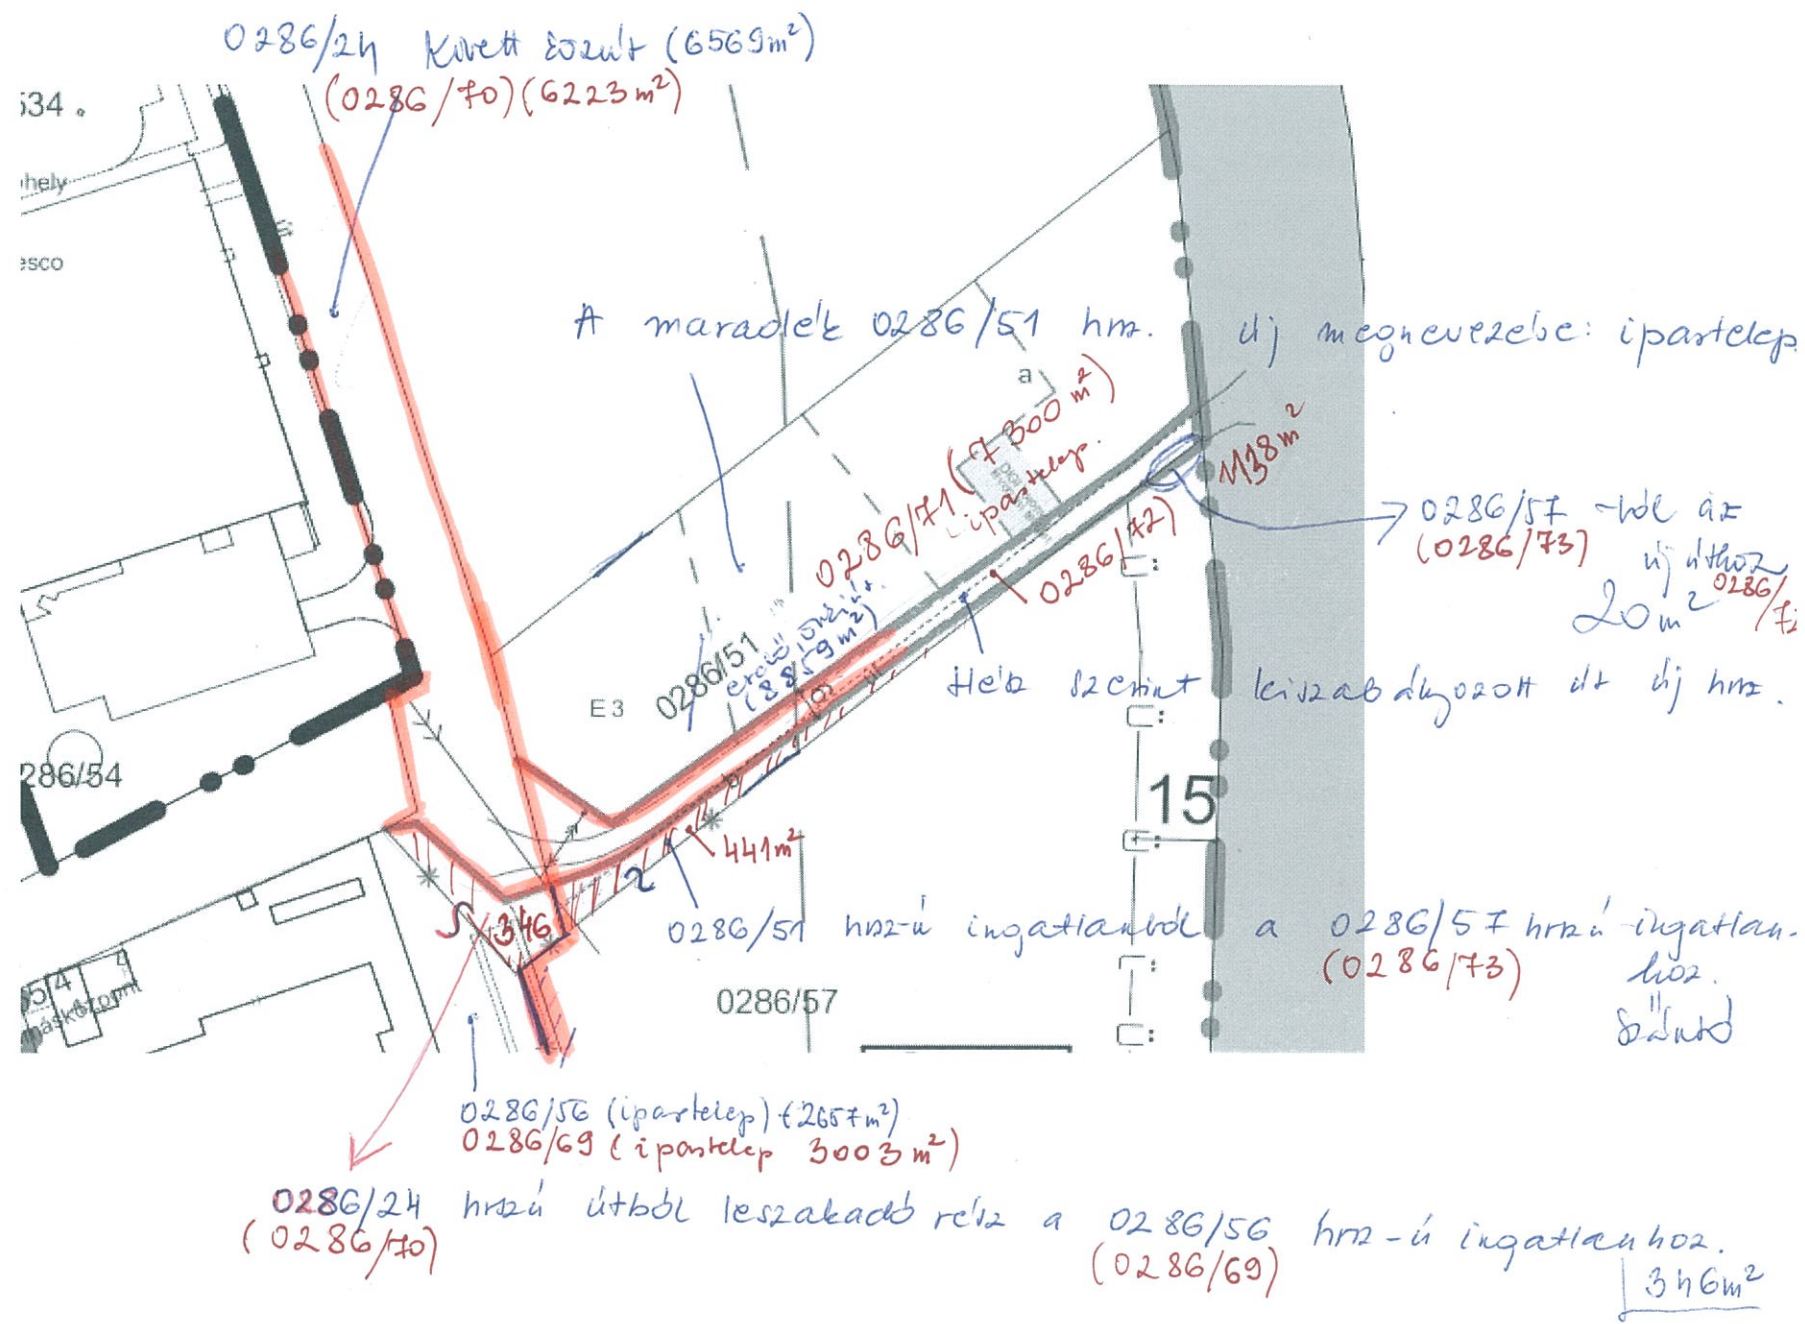 0286/24 Kivett közút (6569m²)
(0286/70) (6223m²)
534.
hely
esco
A maradék 0286/51 hrsz. új megnevezése: ipartelep
a
(7300 m²)
ipartelep.
0286/71
1138m²
0286/72)
0286/57 -ből az
(0286/73) új úthoz
20m² 0286/72
0286/51
erdő, önz. út.
(8859m²)
E3
Hész szerint kiszabályozott út új hrsz.
286/54
15
441m²
2
S 346
0286/51 hrsz-ú ingatlanból a 0286/57 hrszú ingatlan-
(0286/73) hoz.
szántó
0286/57
55/4
máskózpont
0286/56 (ipartelep) (2657m²)
0286/69 (ipartelep 3003m²)
0286/24 hrszú útból leszakadó rész a 0286/56 hrsz-ú ingatlanhoz.
(0286/70) (0286/69)
346m²